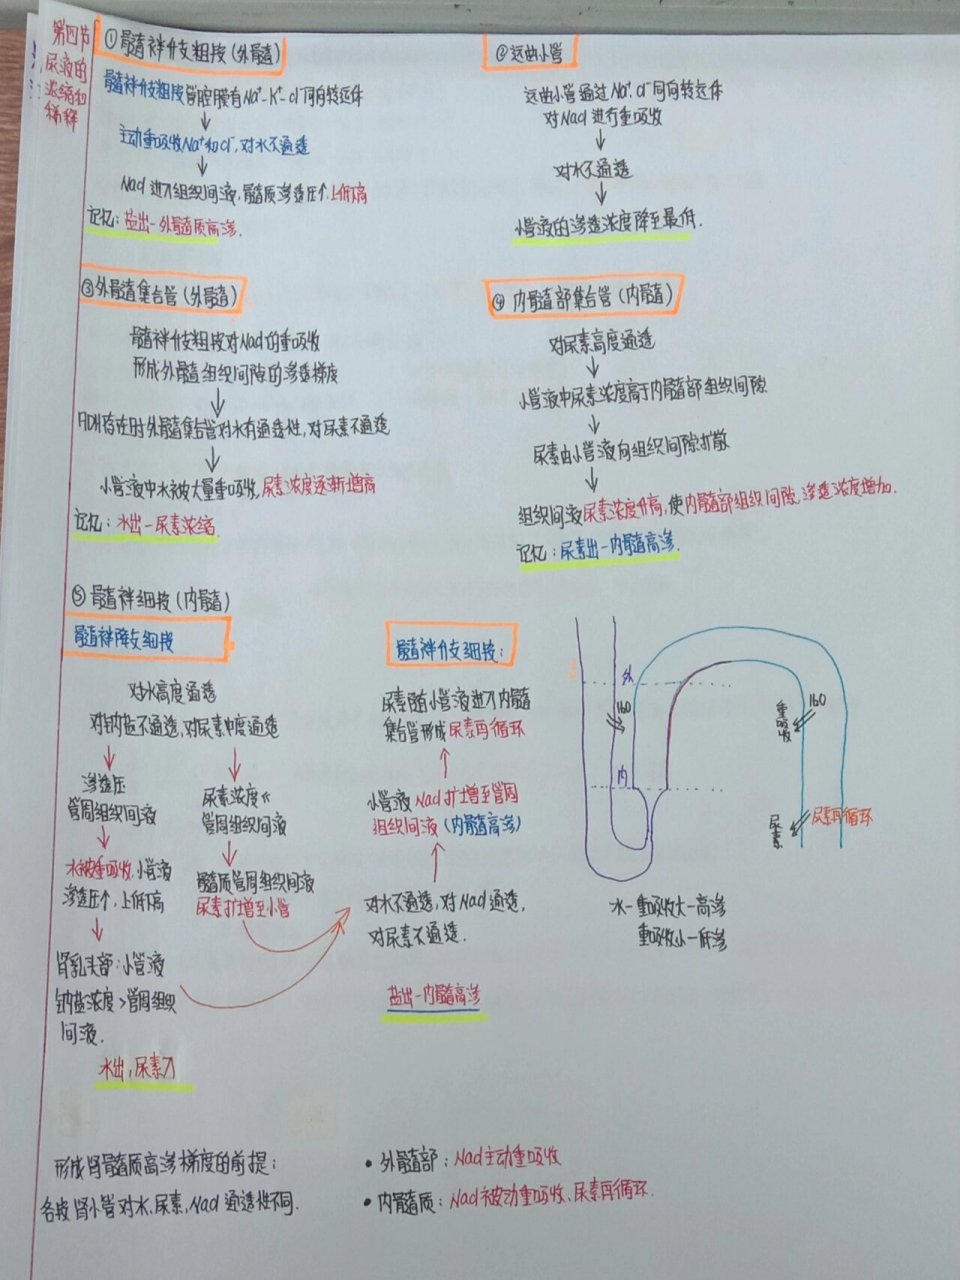 第四节
尿液的
浓缩和
稀释
①髓袢升支粗段(外髓)
髓袢升支粗段管腔膜有Na⁺-K⁺-Cl⁻同向转运体
↓
主动重吸收Na⁺和Cl⁻,对水不通透
↓
NaCl进入组织间液,髓质渗透压↑,上低下高
记忆:盐出-外髓质高渗.
②远曲小管
远曲小管通过Na⁺.Cl⁻同向转运体
对NaCl进行重吸收
↓
对水不通透
↓
小管液的渗透浓度降至最低.
③外髓集合管(外髓)
髓袢升支粗段对NaCl的重吸收
形成外髓组织间隙的渗透梯度
↓
ADH存在时外髓集合管对水有通透性,对尿素不通透
↓
小管液中水被大量重吸收,尿素浓度逐渐增高
记忆:水出-尿素浓缩.
④内髓部集合管(内髓)
对尿素高度通透
↓
小管液中尿素浓度高于内髓部组织间隙
↓
尿素由小管液向组织间隙扩散
↓
组织间液尿素浓度升高,使内髓部组织间隙,渗透浓度增加.
记忆:尿素出-内髓高渗.
⑤髓袢细段(内髓)
髓袢降支细段
对水高度通透
对钠盐不通透,对尿素中度通透
↓ ↓
渗透压
管周组织间液
↓
水被重吸收,小管液
渗透压↑,上低下高
↓
肾乳头部:小管液
钠盐浓度>管周组织
间液.
水出,尿素入
尿素浓度
管周组织间液
↓
髓质管周组织间液
尿素扩增至小管
髓袢升支细段:
尿素随小管液进入内髓
集合管形成尿素再循环
↑
小管液NaCl扩增至管周
组织间液(内髓高渗)
↑
对水不通透,对NaCl通透,
对尿素不通透.
盐出-内髓高渗
外
H₂O
内
重吸收
H₂O
尿素
尿素再循环
水-重吸收大-高渗
重吸收小-低渗
形成肾髓质高渗梯度的前提:
各段肾小管对水,尿素,NaCl通透性不同.
• 外髓部:NaCl主动重吸收
• 内髓质:NaCl被动重吸收、尿素再循环.